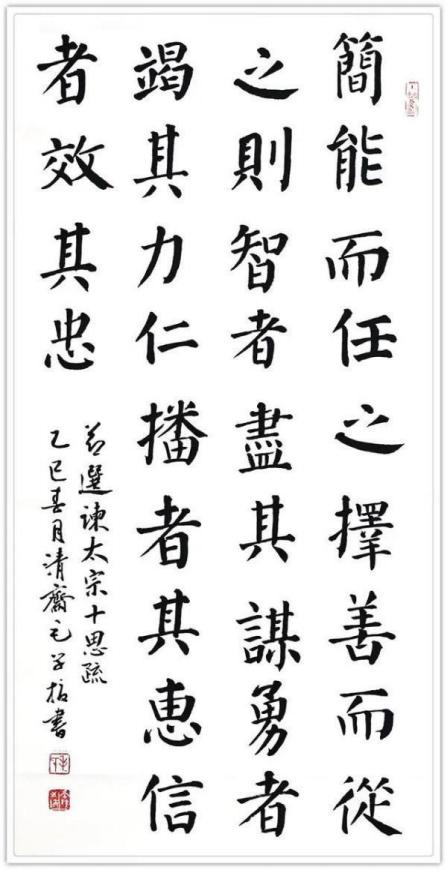 簡能而任之擇善而從
之則智者盡其謀勇者
竭其力仁播者其惠信
者效其忠
节選諫太宗十思疏
乙巳春月清齋毛学書